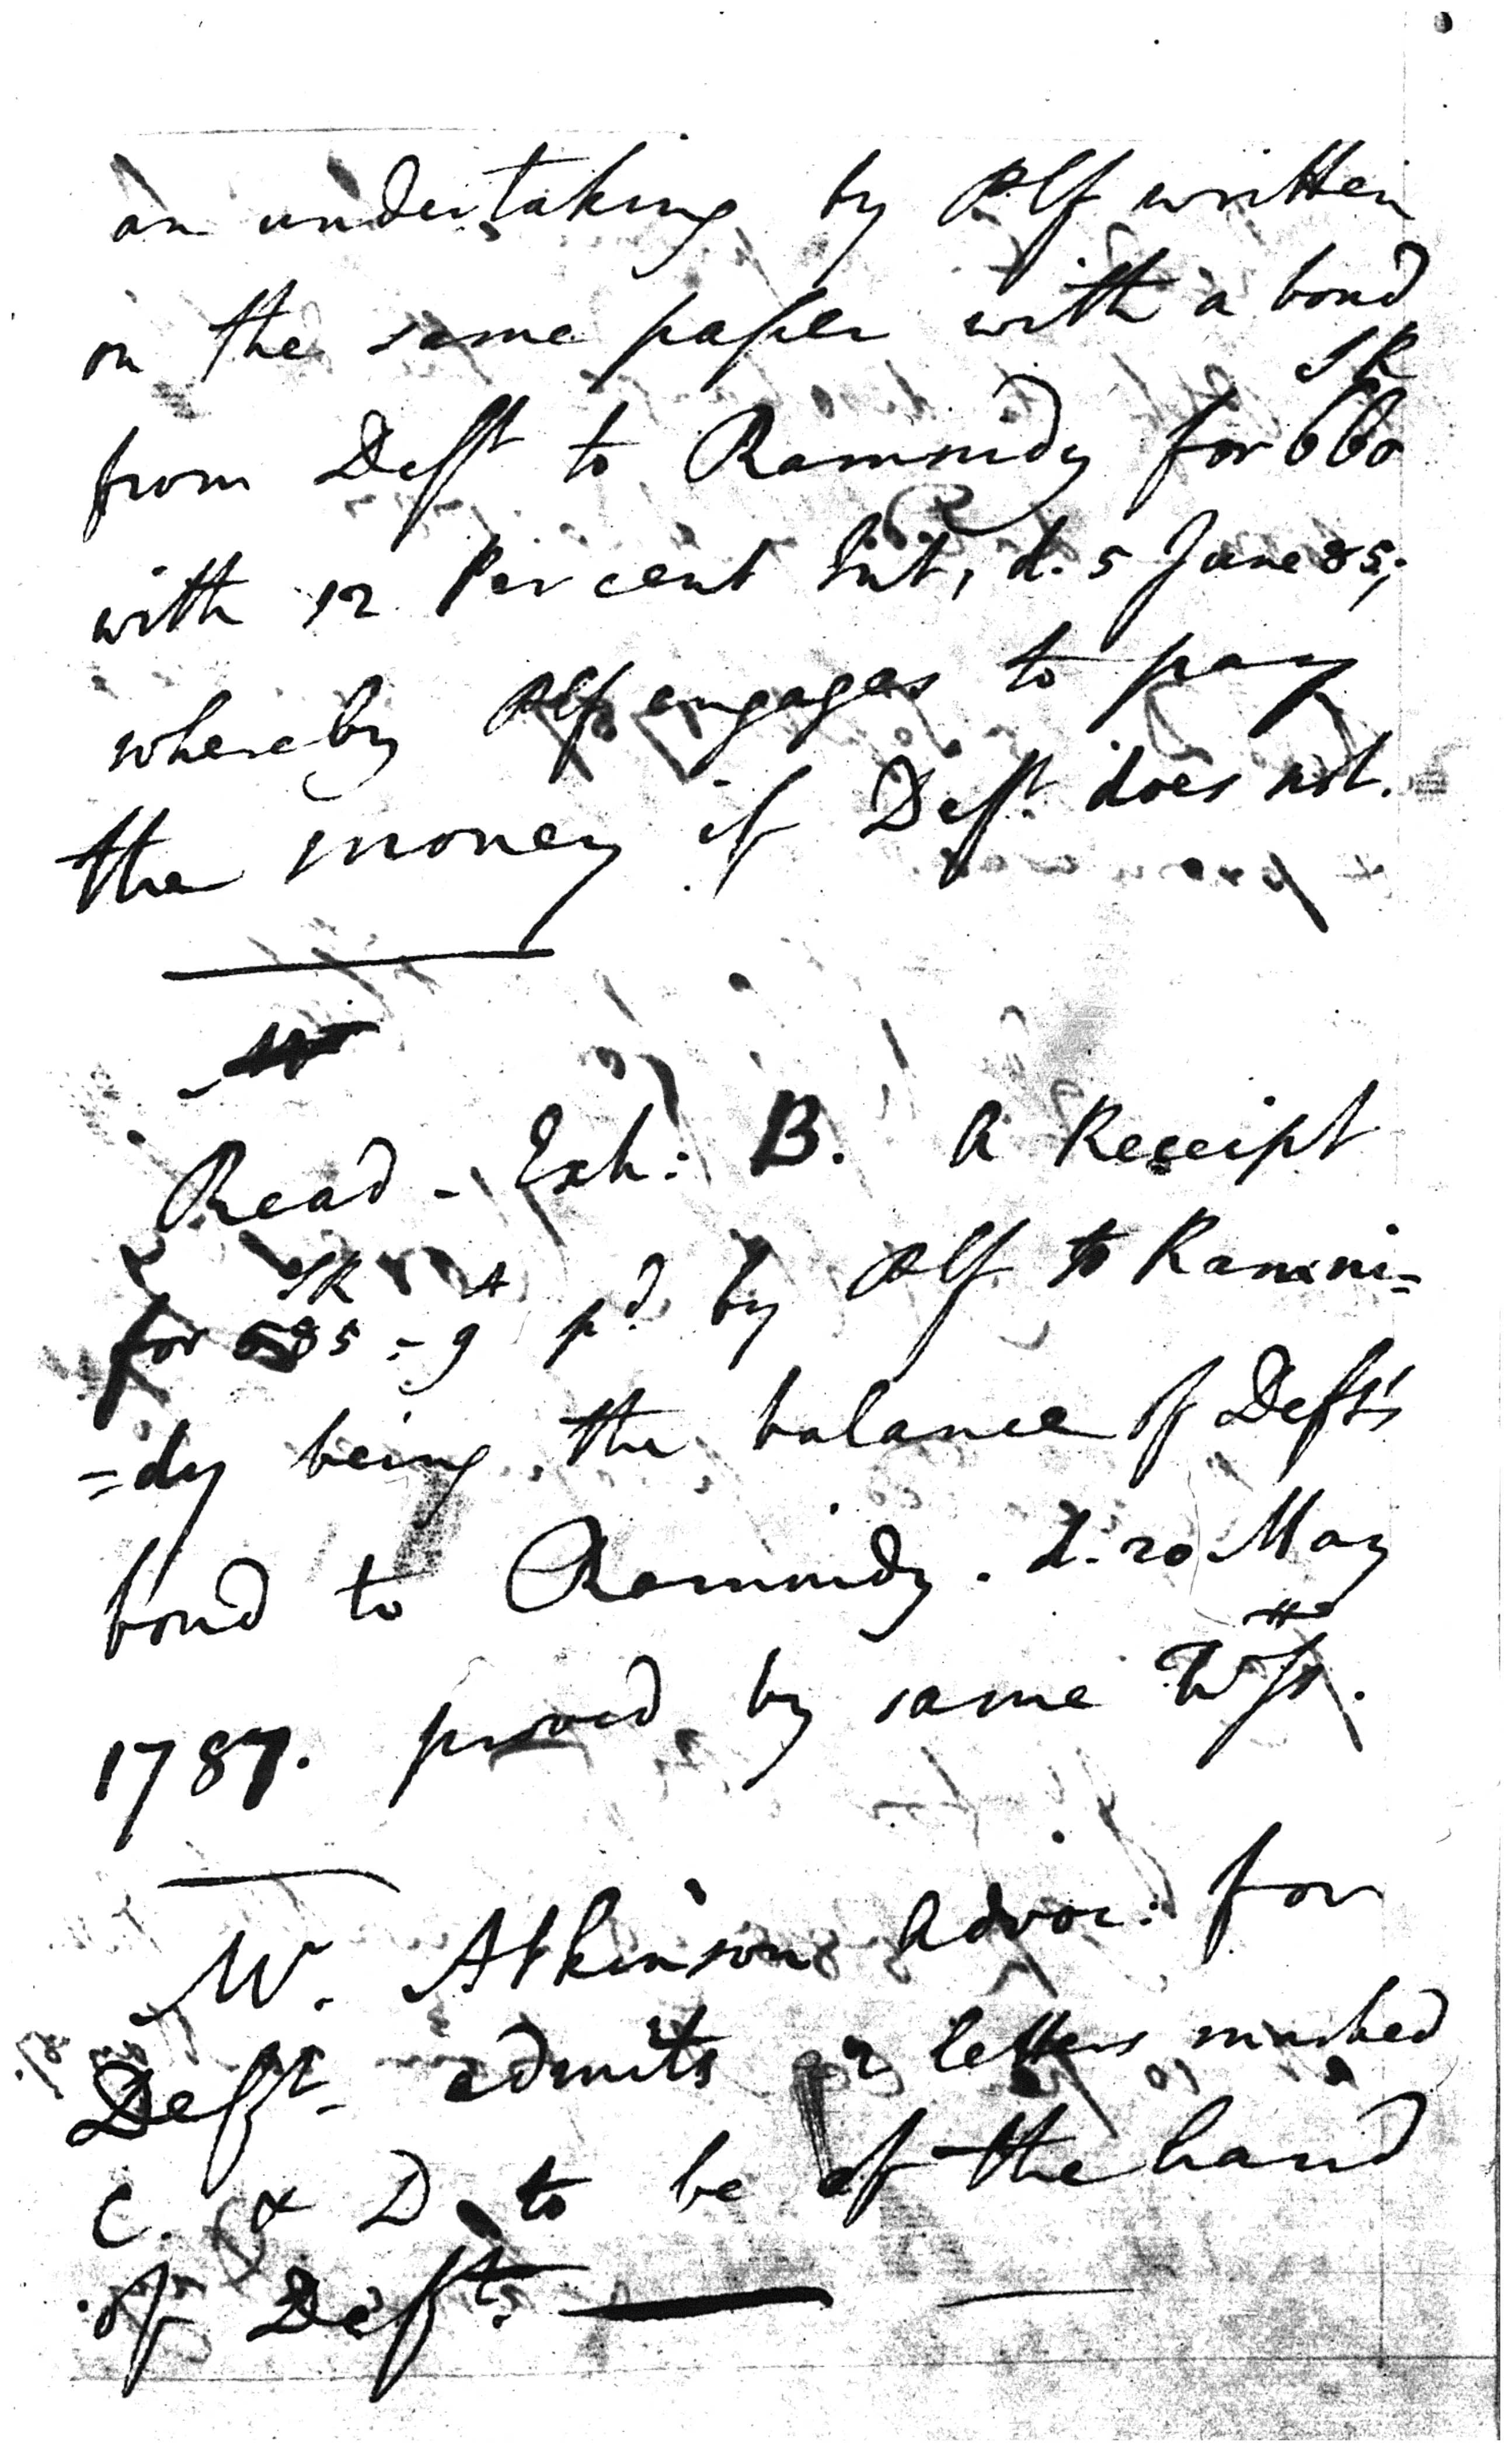 an undertaking by Plf written
on the same paper with a bond
from Deft to Rammidy for SR 660
with 12 Per cent Int, d. 5 June 85;
whereby Plf engages to pay
the money if Deft does not.
Read - Exh: B. A Receipt
for SR 585 = 9 A pd. by Plf to Rammi=
=dy being the balance of Deft's
bond to Rammidy. d. 20 May
1787. proved by same Wss.
Mr. Atkinson Advoc: for
Deft. admits 2 letters marked
C. & D to be of the hand
of Deft.